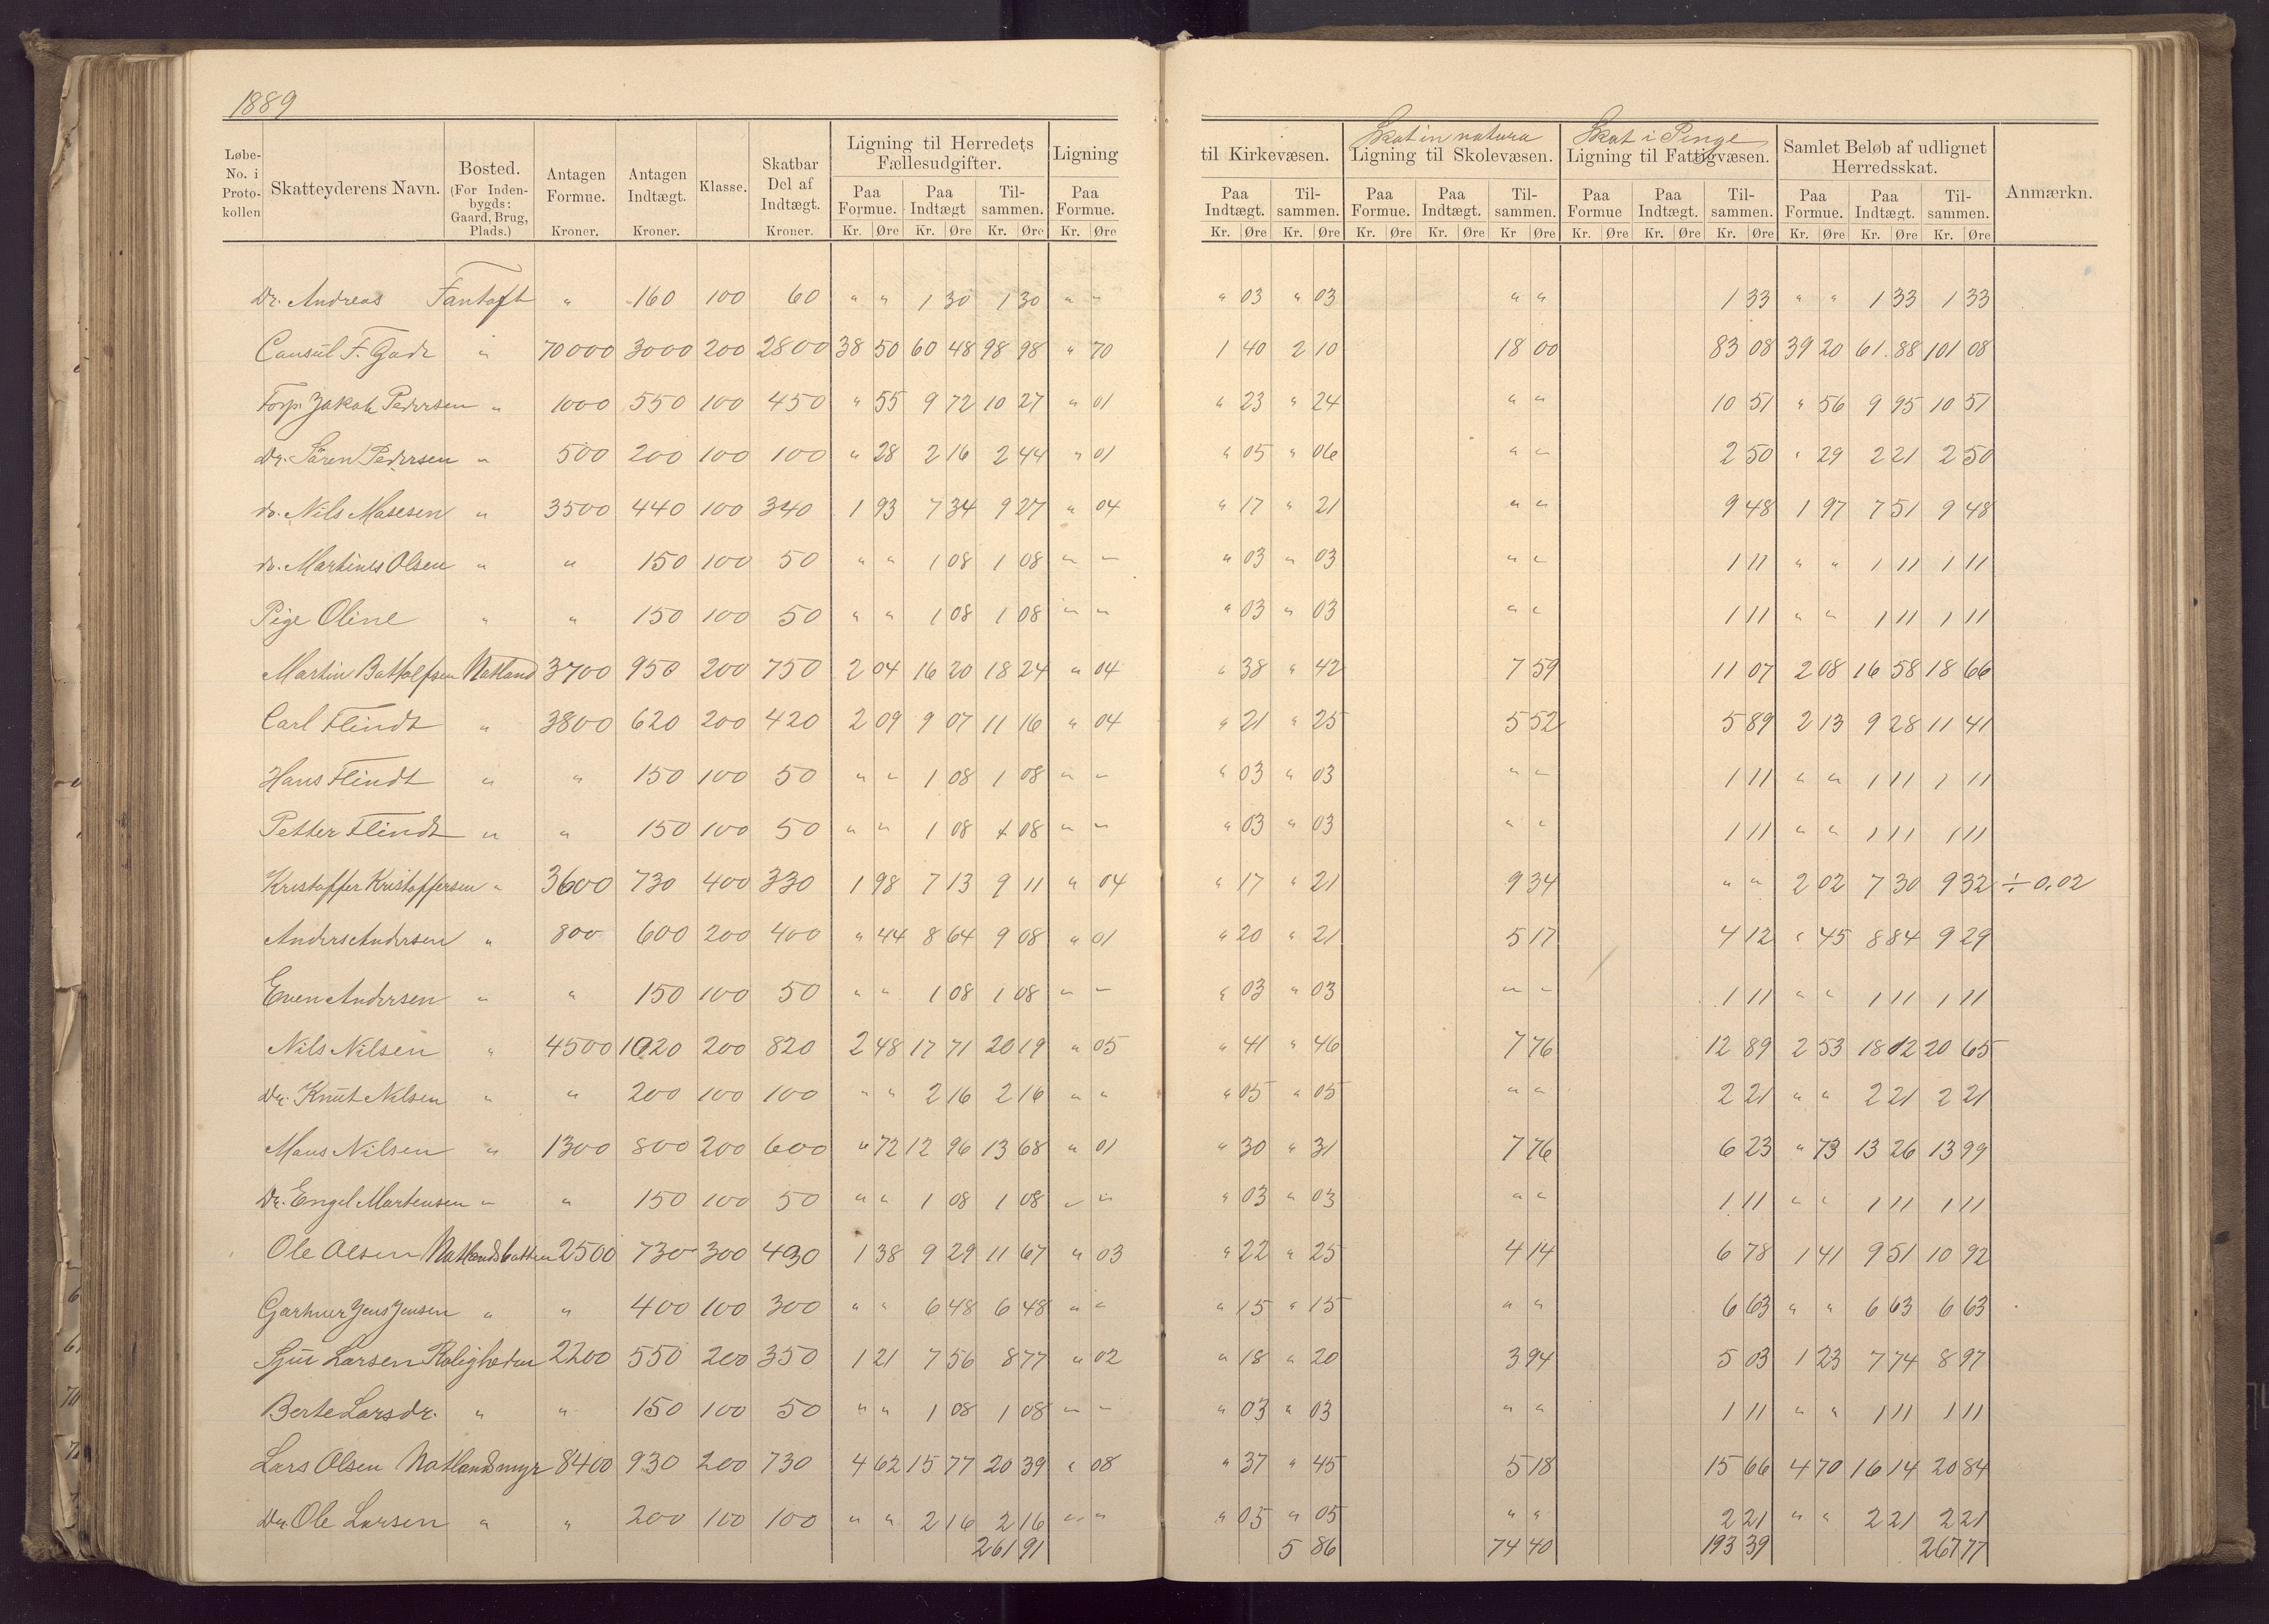 1889
Løbe-No. i Proto-kollen | Skatteyderens Navn. | Bosted. (For Inden-bygds: Gaard, Brug, Plads.) | Antagen Formue. Kroner. | Antagen Indtægt. Kroner. | Klasse. | Skatbar Del af Indtægt. Kroner. | Ligning til Herredets Fællesudgifter. | Ligning til Kirkevæsen. | Skat in natura Ligning til Skolevæsen. | Skat i Penge Ligning til Fattigvæsen. | Samlet Beløb af udlignet Herredsskat. | Anmærkn.
Paa Formue. | Paa Indtægt | Til-sammen. | Paa Formue. | Paa Indtægt. | Til-sammen. | Paa Formue. | Paa Indtægt. | Til-sammen. | Paa Formue | Paa Indtægt. | Til-sammen. | Paa Formue. | Paa Indtægt. | Til-sammen.
Kr. Øre Kr. Øre Kr. Øre Kr. Øre Kr. Øre Kr. Øre Kr. Øre Kr. Øre Kr Øre Kr. Øre Kr. Øre Kr. Øre Kr. Øre Kr. Øre Kr. Øre
Dr. Andreas Fantoft " 160 100 60 " " 1 30 1 30 " " " 03 " 03 " " 1 33 " " 1 33 1 33
Consul F. Gade " 70000 3000 200 2800 38 50 60 48 98 98 " 70 1 40 2 10 18 00 83 08 39 20 61.88 101 08
Forp. Jakob Pedersen " 1000 550 100 450 " 55 9 72 10 27 " 01 " 23 " 24 " " 10 51 " 56 9 95 10 51
Dr. Sören Pedersen " 500 200 100 100 " 28 2 16 2 44 " 01 " 05 " 06 " " 2 50 " 29 2 21 2 50
Dr. Nils Masesen " 3500 440 100 340 1 93 7 34 9 27 " 04 " 17 " 21 " " 9 48 1 97 7 51 9 48
Dr. Martines Olsen " " 150 100 50 " " 1 08 1 08 " " " 03 " 03 " " 1 11 " " 1 11 1 11
Pige Oline " " 150 100 50 " " 1 08 1 08 " " " 03 " 03 " " 1 11 " " 1 11 1 11
Martin Batholfsen Natland 3700 950 200 750 2 04 16 20 18 24 " 04 " 38 " 42 7 59 11 07 2 08 16 58 18 66
Carl Flindt " 3800 620 200 420 2 09 9 07 11 16 " 04 " 21 " 25 5 52 5 89 2 13 9 28 11 41
Hans Flindt " " 150 100 50 " " 1 08 1 08 " " " 03 " 03 " " 1 11 " " 1 11 1 11
Petter Flindt " " 150 100 50 " " 1 08 1 08 " " " 03 " 03 " " 1 11 " " 1 11 1 11
Kristoffer Kristoffersen " 3600 730 400 330 1 98 7 13 9 11 " 04 " 17 " 21 9 34 " " 2 02 7 30 9 32 ÷ 0,02
Anders Andersen " 800 600 200 400 " 44 8 64 9 08 " 01 " 20 " 21 5 17 4 12 " 45 8 84 9 29
Even Andersen " " 150 100 50 " " 1 08 1 08 " " " 03 " 03 " " 1 11 " " 1 11 1 11
Nils Nilsen " 4500 1020 200 820 2 48 17 71 20 19 " 05 " 41 " 46 7 76 12 89 2 53 18 12 20 65
Dr. Knut Nilsen " " 200 100 100 " " 2 16 2 16 " " " 05 " 05 " " 2 21 " " 2 21 2 21
Mons Nilsen " 1300 800 200 600 " 72 12 96 13 68 " 01 " 30 " 31 7 76 6 23 " 73 13 26 13 99
Dr. Engel Martensen " " 150 100 50 " " 1 08 1 08 " " " 03 " 03 " " 1 11 " " 1 11 1 11
Ole Olsen Natlandsbatten 2500 730 300 430 1 38 9 29 11 67 " 03 " 22 " 25 4 14 6 78 1 41 9 51 10 92
Gartner Jens Jensen " " 400 100 300 " " 6 48 6 48 " " " 15 " 15 " " 6 63 " " 6 63 6 63
Sjur Larsen Roligheden 2200 550 200 350 1 21 7 56 8 77 " 02 " 18 " 20 3 94 5 03 1 23 7 74 8 97
Berte Larsdr. " " 150 100 50 " " 1 08 1 08 " " " 03 " 03 " " 1 11 " " 1 11 1 11
Lars Olsen Natlandsmyr 8400 930 200 730 4 62 15 77 20 39 " 08 " 37 " 45 5 18 15 66 4 70 16 14 20 84
Dr. Ole Larsen " " 200 100 100 " " 2 16 2 16 " " " 05 " 05 " " 2 21 " " 2 21 2 21
261 91 5 86 74 40 193 39 267 77